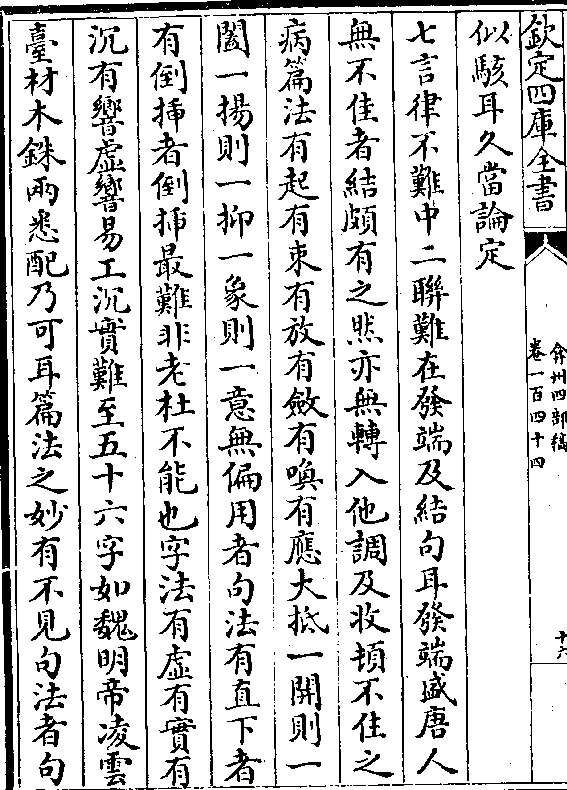 欽定四庫全書
弇州四部稿
卷一百四十四
十六
似駭耳久當論定
七言律不難中二聯難在發端及結句耳發端盛唐人
無不佳者結頗有之然亦無轉入他調及收頓不住之
病篇法有起有束有放有斂有喚有應大抵一開則一
闔一揚則一抑一象則一意無偏用者句法有直下者
有倒揷者倒揷最難非老杜不能也字法有虛有實有
沉有響虛響易工沉實難至五十六字如魏明帝凌雲
臺材木銖兩悉配乃可耳篇法之妙有不見句法者句